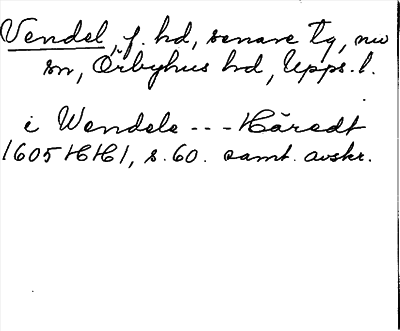 Vendel, f. hd, senare tg, nu
sn, Örbyhus hd, Upps. l.
i Wendele --- Häredt
1605 HH1, s. 60. samt. avskr.